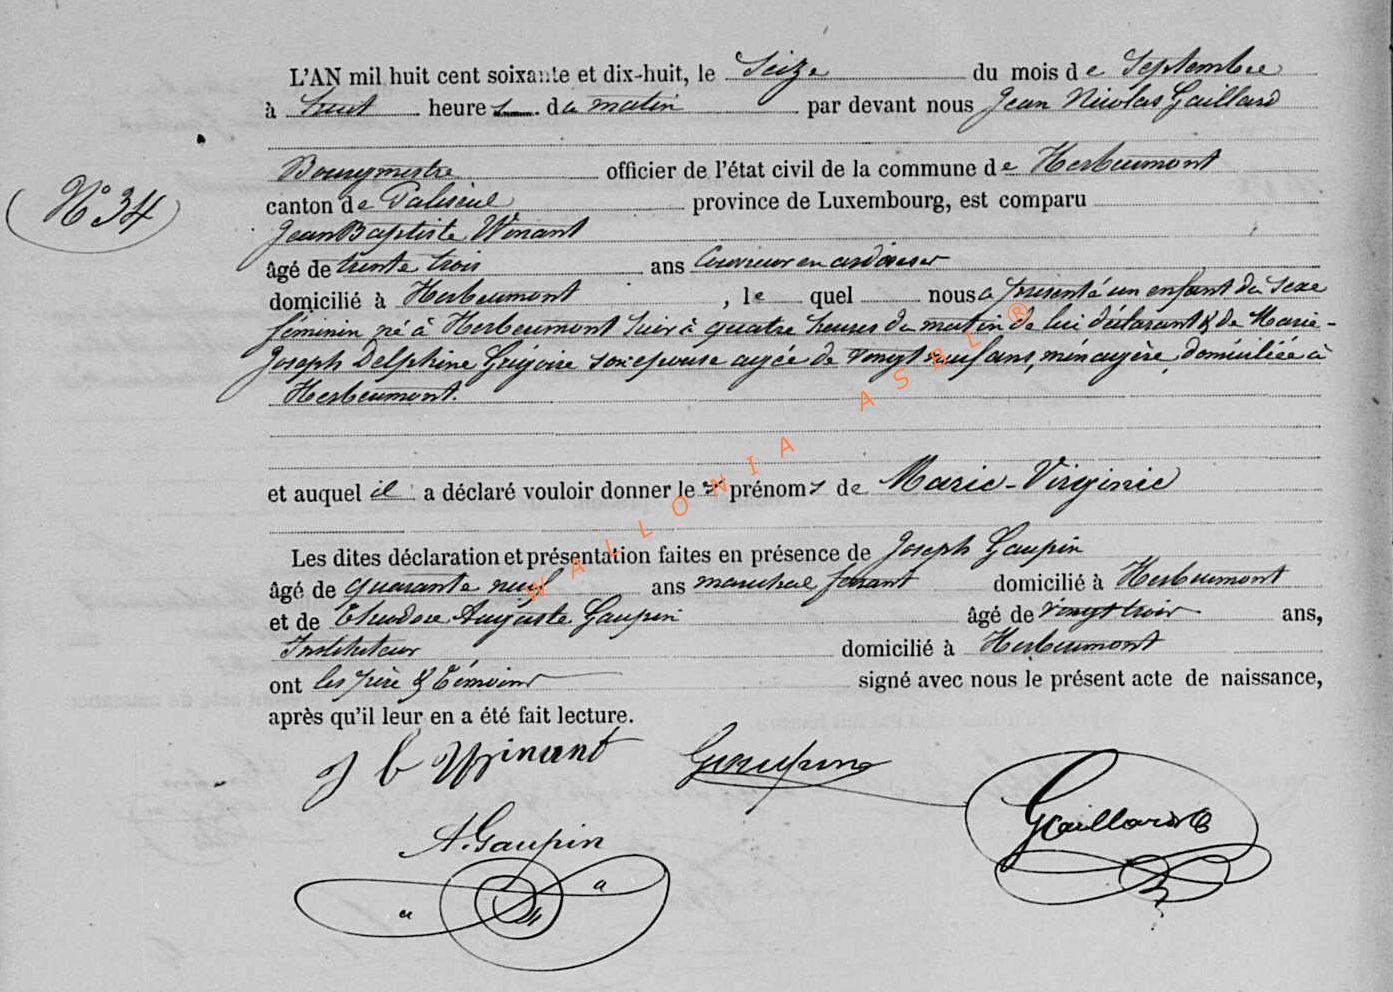 L'AN mil huit cent soixante et dix-huit, le Seize du mois de Septembre
à huit heures du matin par devant nous Jean Nicolas Gaillard
Bourgmestre officier de l'état civil de la commune de Herbeumont
N° 34
canton de Paliseul province de Luxembourg, est comparu
Jean Baptiste Winant
âgé de trente trois ans Couvreur en ardoises
domicilié à Herbeumont, lequel nous a présenté un enfant du sexe
féminin né à Herbeumont à quatre heures du matin de lui déclarant & de Marie-
Joseph Delphine Grégoire son épouse agée de vingt neuf ans, ménagère, domiciliée à
Herbeumont.
et auquel il a déclaré vouloir donner les prénoms de Marie-Virginie
Les dites déclaration et présentation faites en présence de Joseph Gaupin
âgé de quarante neuf ans maréchal ferrant domicilié à Herbeumont
et de Théodore Auguste Gaupin âgé de vingt trois ans,
Instituteur domicilié à Herbeumont
ont les père & témoins signé avec nous le présent acte de naissance,
après qu'il leur en a été fait lecture.
J b Winant Gaupin
Gaillard
A. Gaupin
WALLONIA ASBL ®